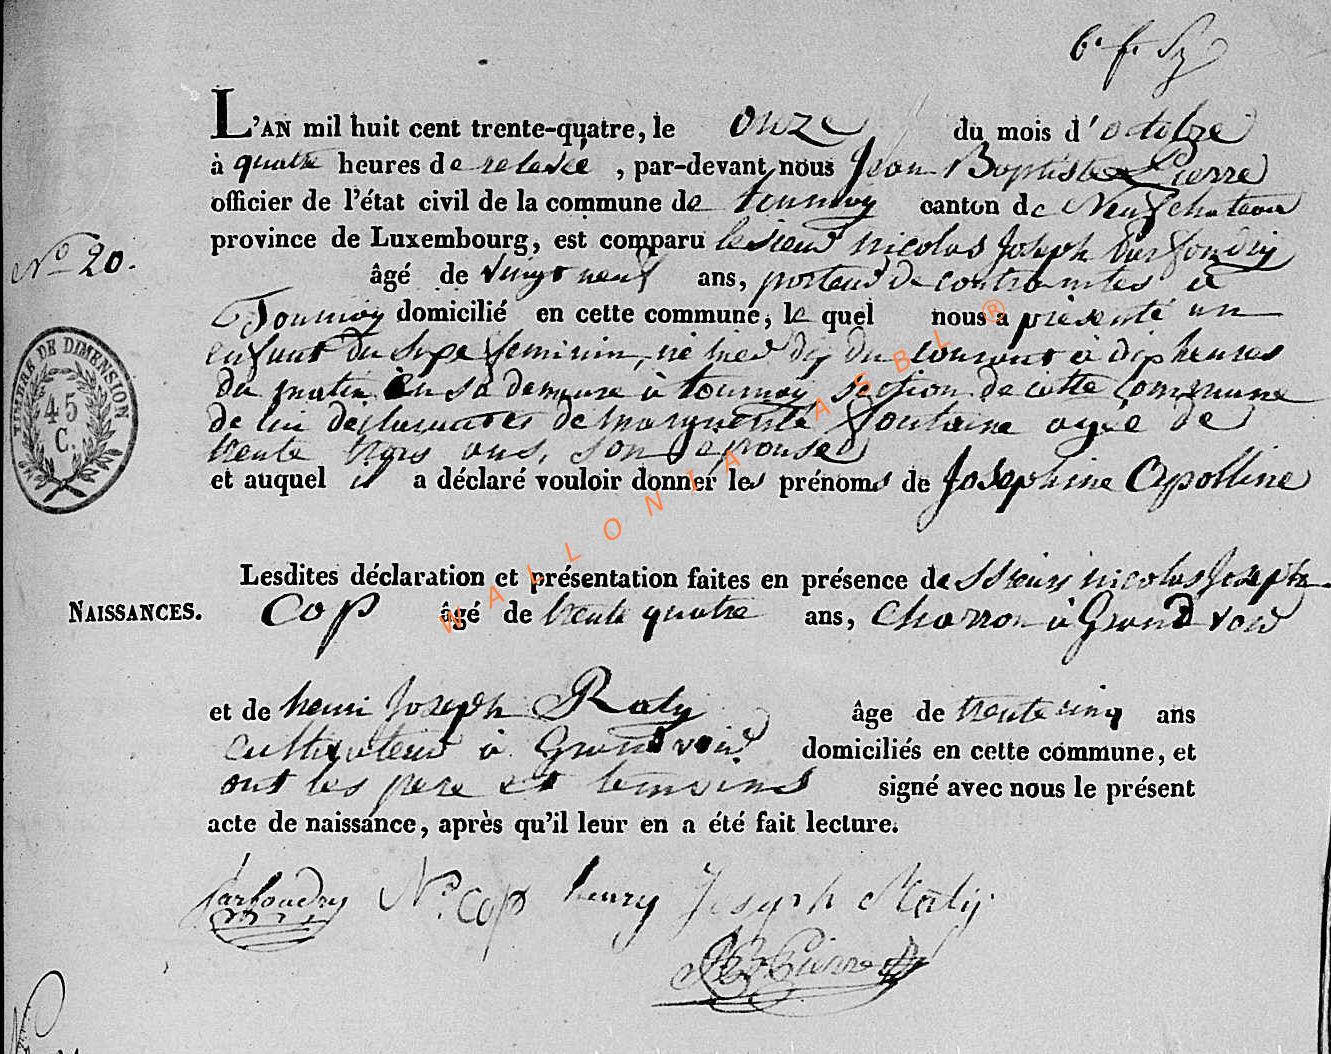 L'AN mil huit cent trente-quatre, le onze du mois d'octobre
à quatre heures de relevée, par-devant nous Jean Baptiste Pierre
officier de l'état civil de la commune de tournay canton de Neufchateau
province de Luxembourg, est comparu le sieur nicolas Joseph
N° 20.
âgé de vingt neuf ans, porteur de contraintes à
Tournay domicilié en cette commune, le quel nous a présenté un
enfant du sexe feminin, né hier dix du courant à dix heures
du matin en sa demeure à tournay section de cette commune
de lui declarant et de marguerite fontaine agée de
trente trois ans, son epouse
et auquel il a déclaré vouloir donner les prénoms de Josephine Apolline
TIMBRE DE DIMENSION
45
C.
Lesdites déclaration et présentation faites en présence des sieurs nicolas Joseph
NAISSANCES. Cop âgé de trente quatre ans, charron à Grandvoir
et de henri Joseph Raty âge de trente cinq ans
cultivateur à Grandvoir domiciliés en cette commune, et
ont les pere et temoins signé avec nous le présent
acte de naissance, après qu'il leur en a été fait lecture.
Parfondry N. Cop henry Joseph Raty
JB Pierre
WALLONIA ASBL ®